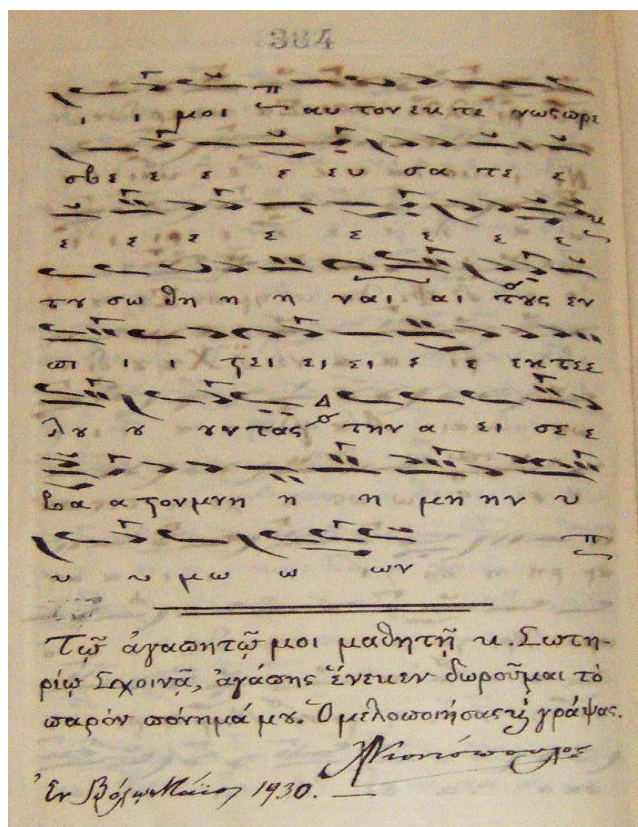 384
ι ι μοι αυ τον εκ τε νως πρε
σβε ε ε ε ευ σα τε ε
ε ε ε ε ε ε ε ε ε
τȣ σω θη η η ναι αι τȣς εν
πι ι ι ςει ει ει ει ε ε εκ τε ε
λȣ ȣ ȣν τας Δ την α ει σε ε
βα α ςον μνη η η μη ην υ
υ υ μω ω ων
Τῷ ἀγαπητῷ μοι μαθητῇ κ. Σωτη-
ρίῳ Σχοινᾷ, ἀγάπης ἕνεκεν δωροῦμαι τὸ
παρὸν πόνημά μȣ. Ὁ μελοποιήσας ϗ γράψας.
Ἐν Βόλῳ Μάϊος 1930.